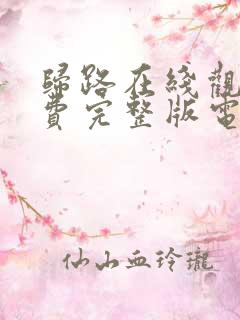 歸路在綫觀
費完整版電
仙山血玲瓏